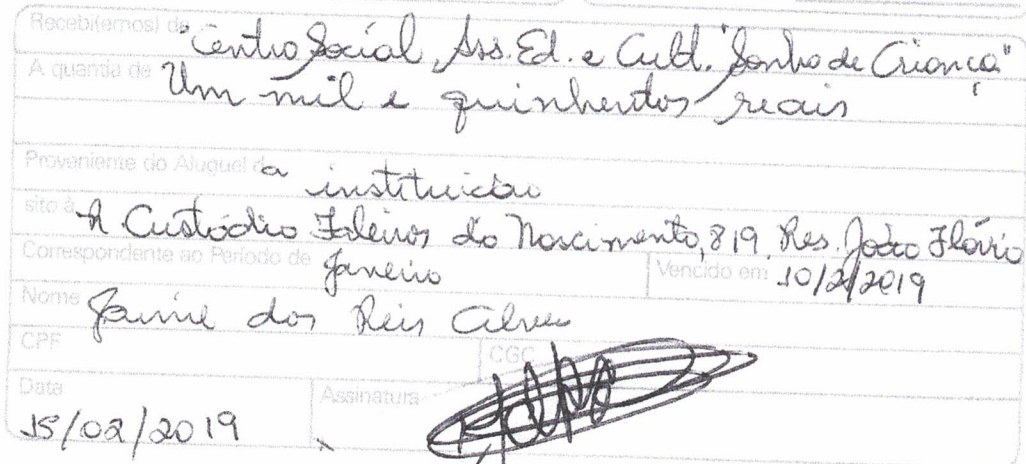 Recebi(emos) de "Centro Social, Ass. Ed. e Cult. "Sonho de Criança"
A quantia de Um mil e quinhentos reais
Proveniente do Aluguel da instituição
sito à R Custódio do Nascimento, 819, Res. João Flávio
Correspondente ao Período de Janeiro Vencido em 10/2/2019
Nome Jaime dos Reis Alves
CPF CGC
Data 15/02/2019 Assinatura